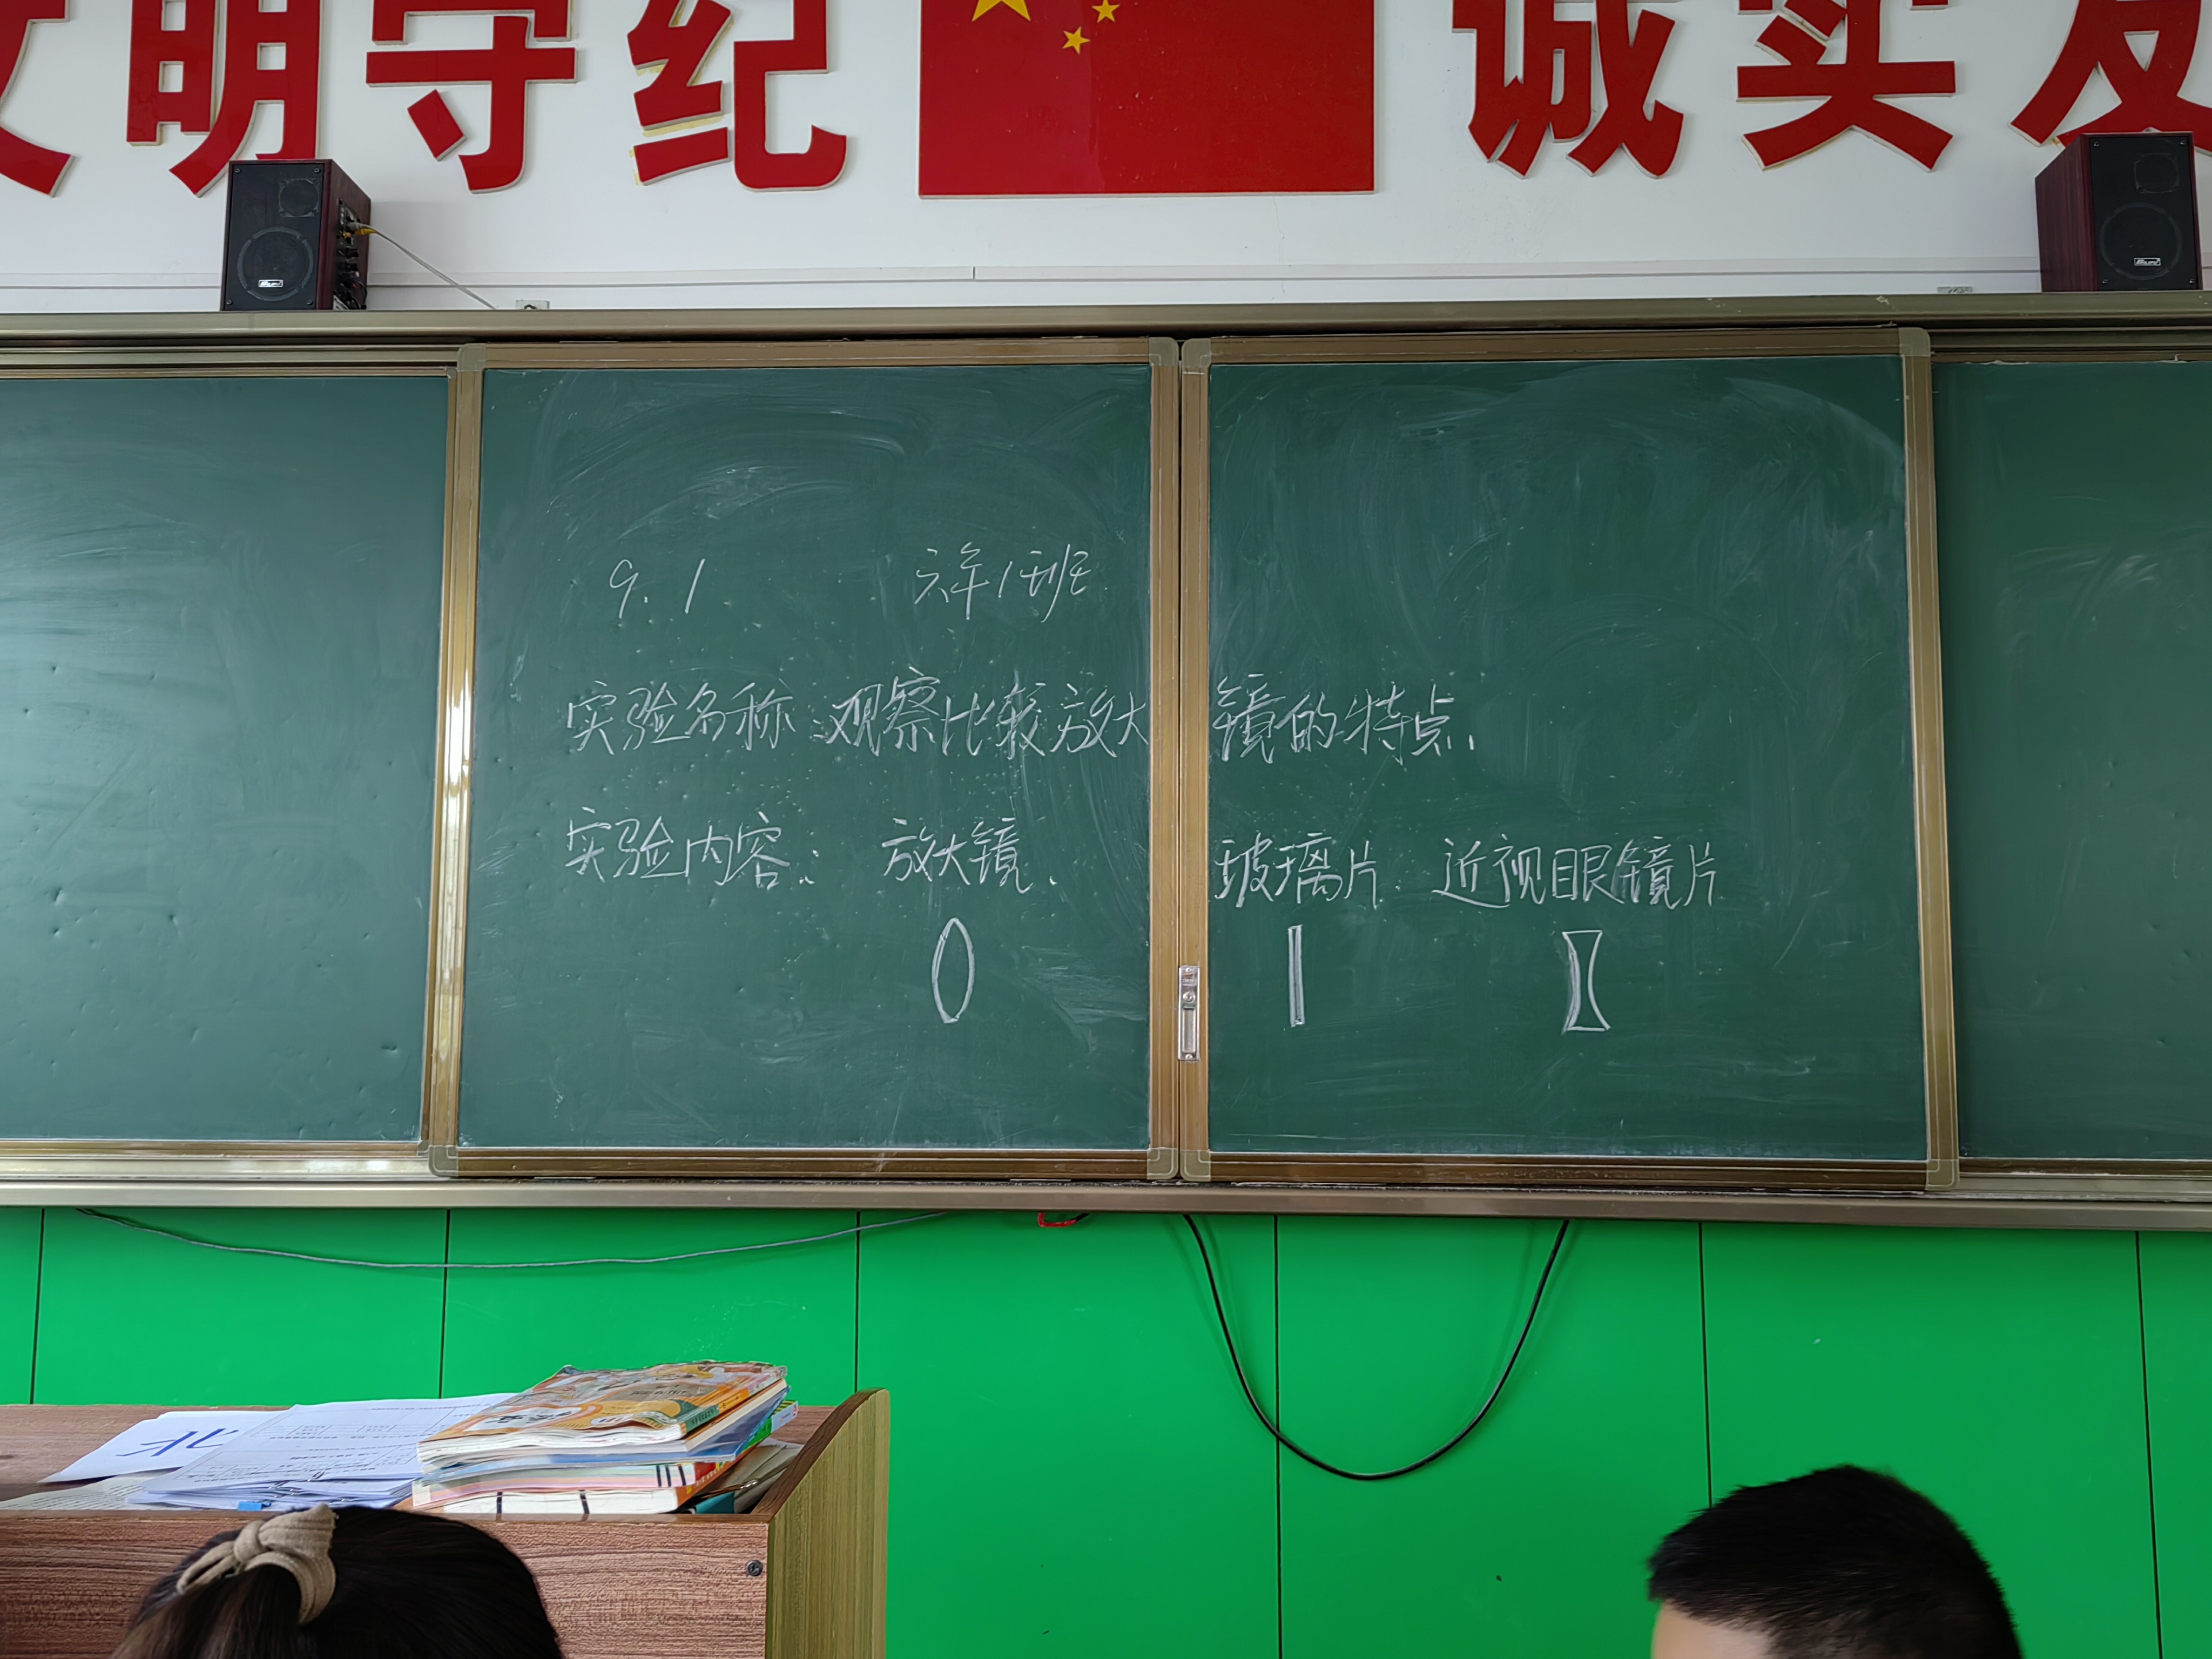 文明守纪 诚实友
9.1 六年1班
实验名称:观察比较放大镜的特点.
实验内容: 放大镜. 玻璃片. 近视眼镜片.